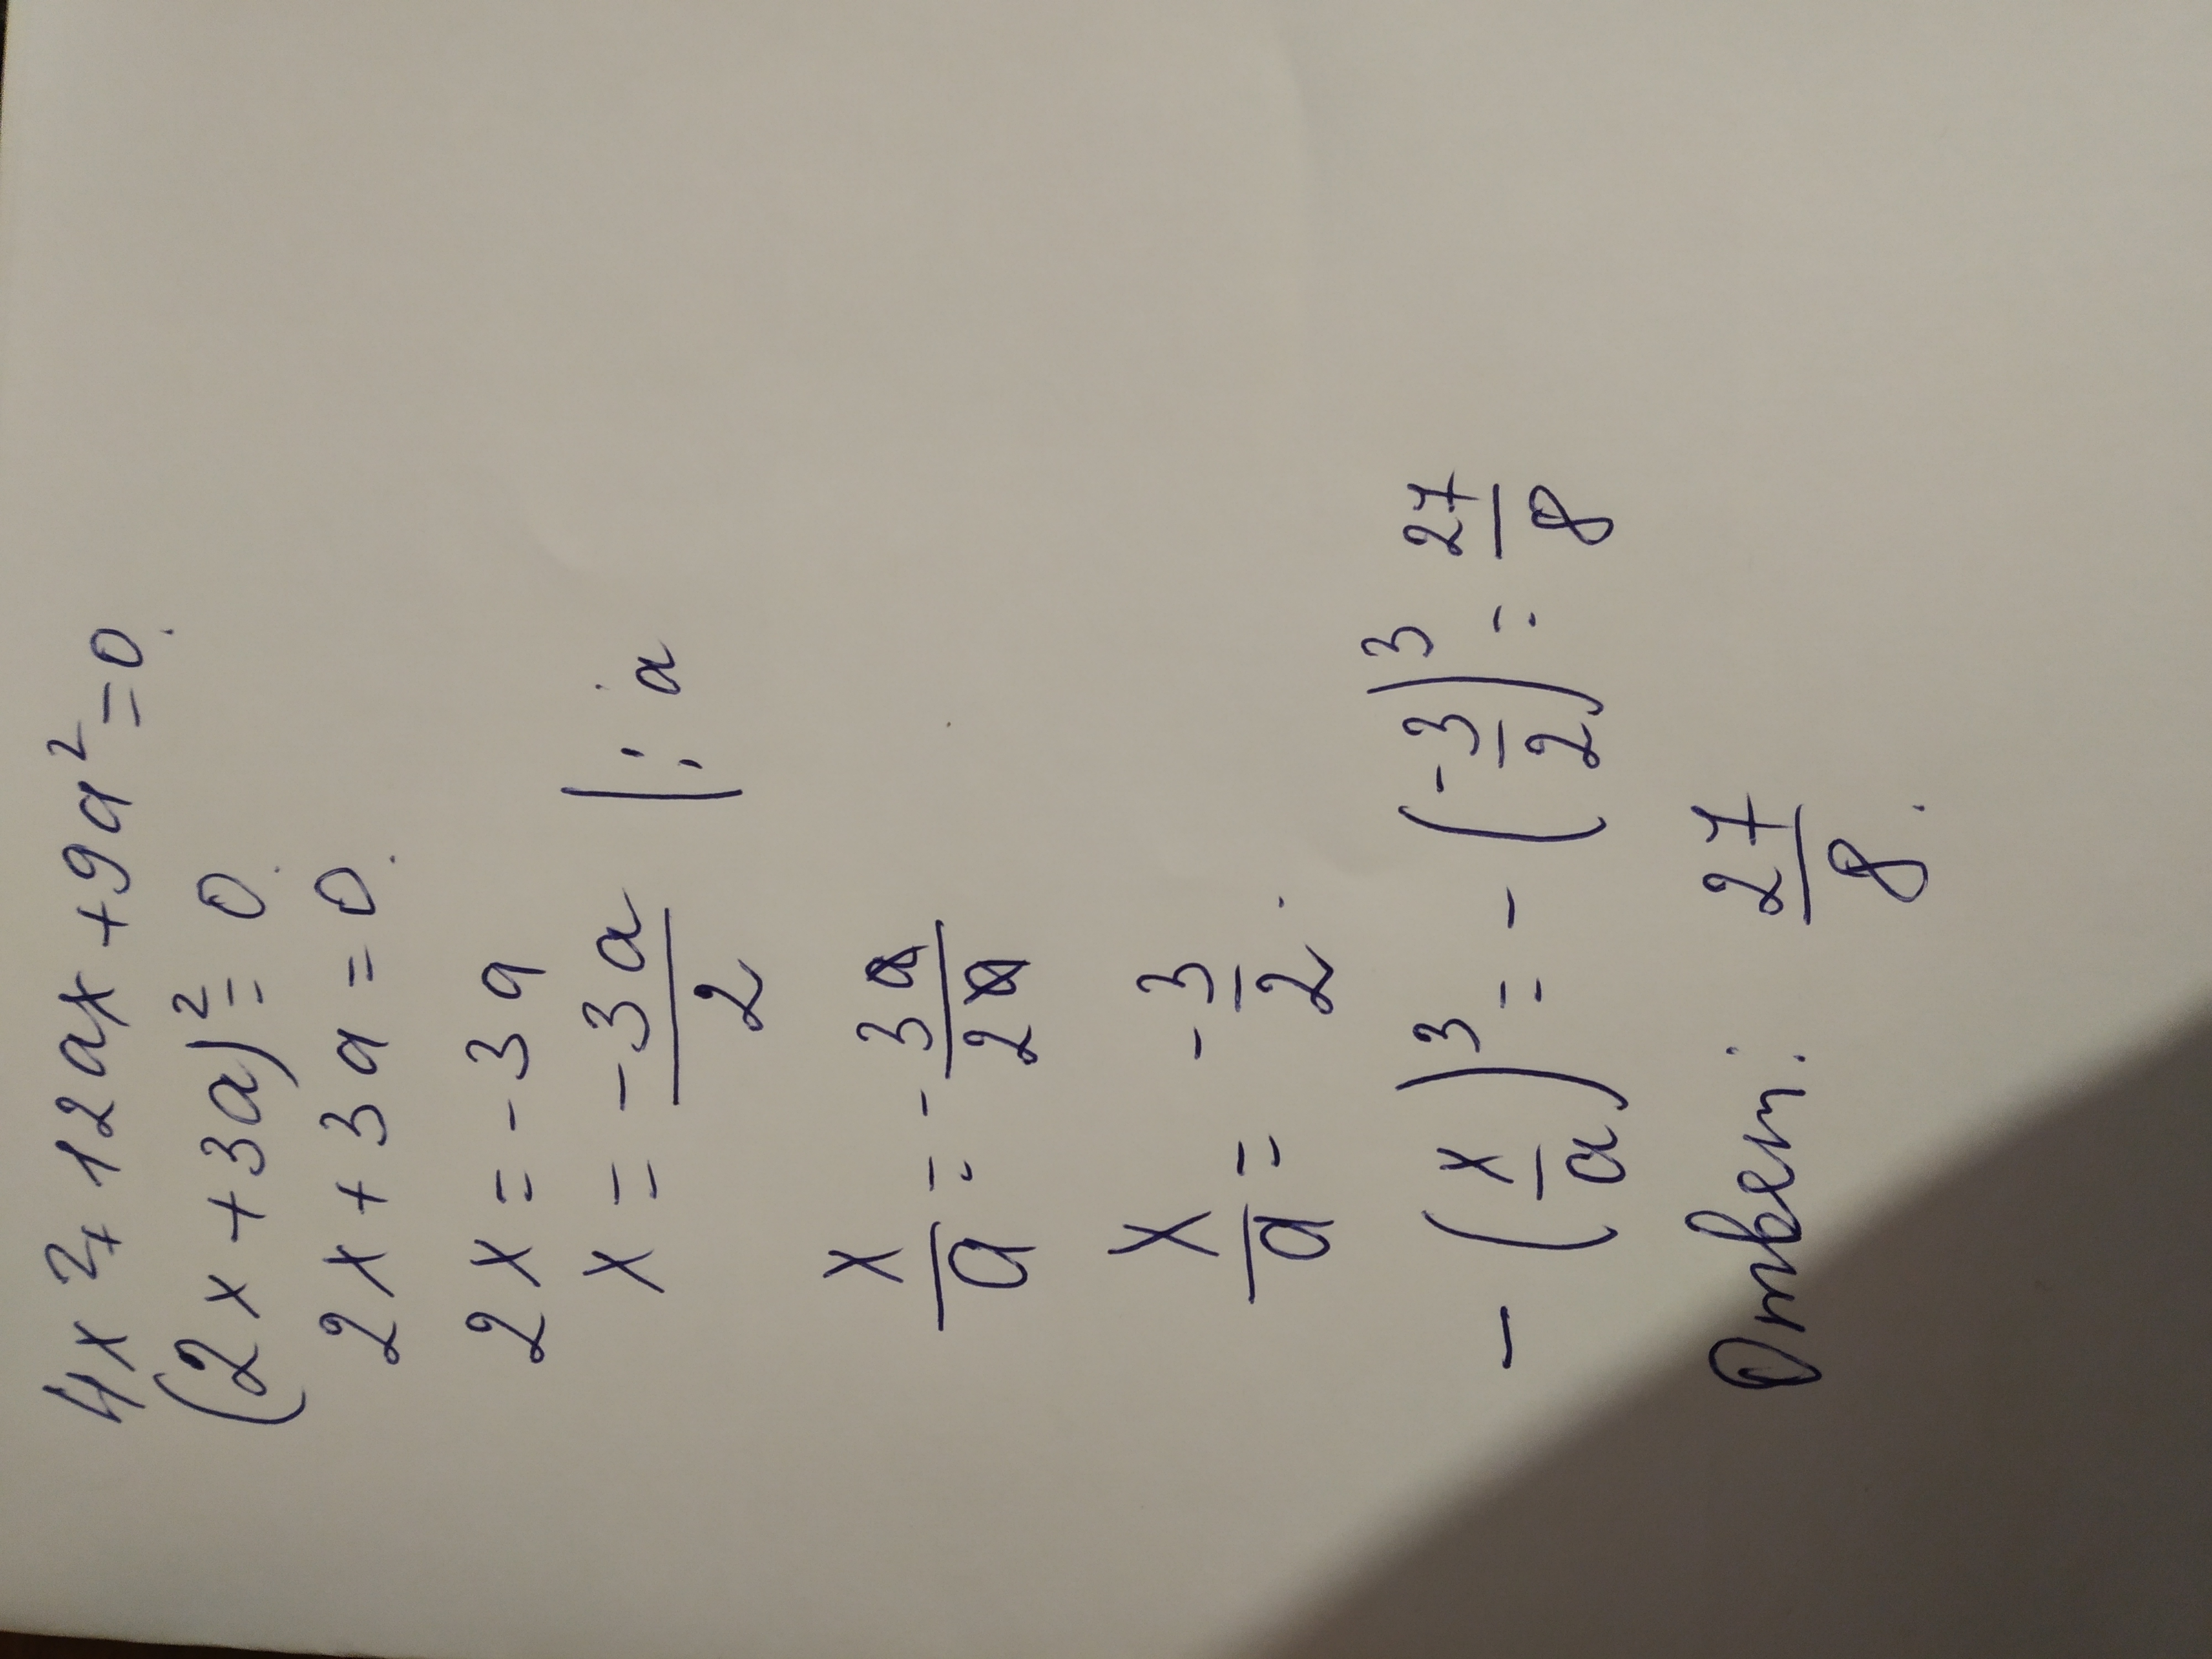 4x²+12ax+9a²=0.
(2x+3a)²=0.
2x+3a=0.
2x=-3a
x=-3a/2 |:a
x/a=-3a/2a
x/a=-3/2.
-(x/a)³=-(-3/2)³=27/8
Ответ: 27/8.